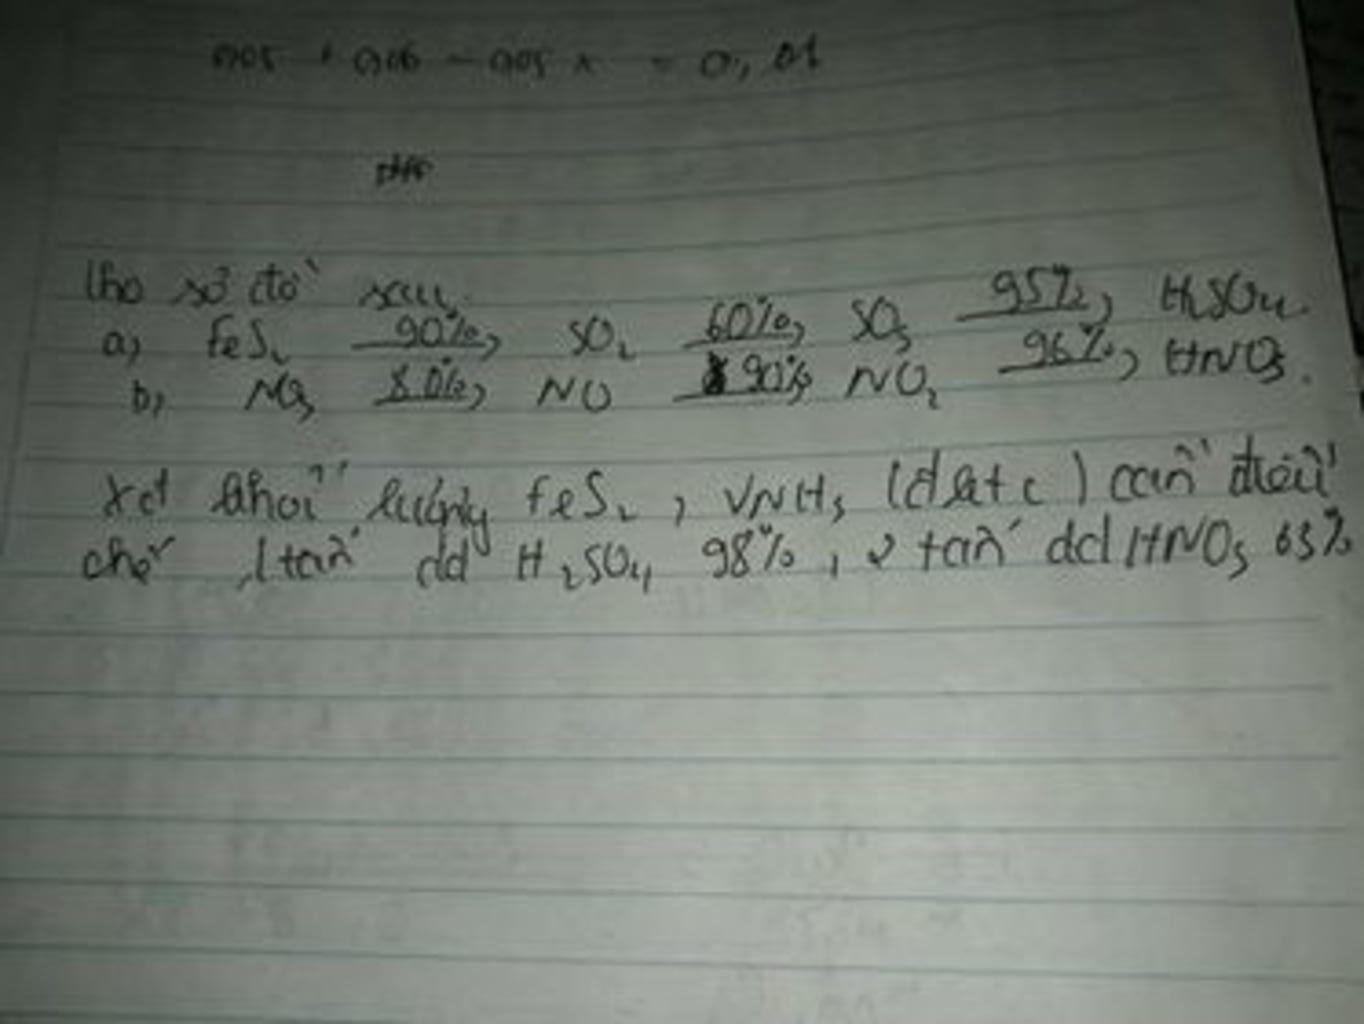 005 + 006 - 005 x = 0, 01
Cho sơ đồ sau
a, FeS2 90% SO2 60% SO3 95% H2SO4
b, NO3 80% NO 90% NO2 96% HNO3.
Xđ khối lượng FeS2, VNH3 (đktc) cần điều
chế 1 tấn dd H2SO4 98%, 2 tấn dd HNO3 63%